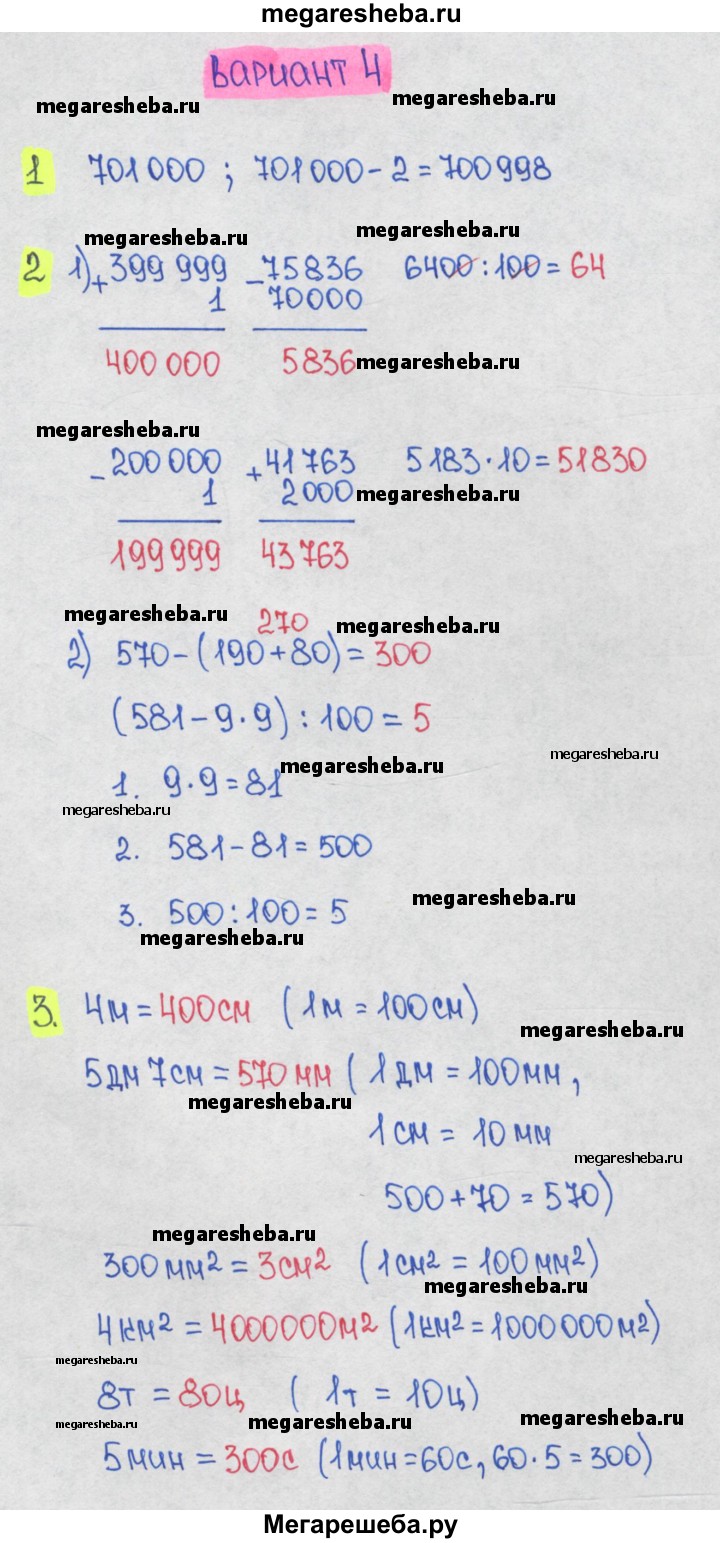 megaresheba.ru
вариант 4
megaresheba.ru megaresheba.ru
1 701 000 ; 701 000 - 2 = 700 998
megaresheba.ru megaresheba.ru
2 1) + 399 999 - 75836 6400 : 100 = 64
1 70000
400 000 5836 megaresheba.ru
megaresheba.ru
- 200 000 + 41 763 5183 · 10 = 51830
1 2 000 megaresheba.ru
199 999 43 763
megaresheba.ru 270 megaresheba.ru
2) 570 - (190 + 80) = 300
(581 - 9 · 9) : 100 = 5
megaresheba.ru megaresheba.ru
1. 9 · 9 = 81
megaresheba.ru
2. 581 - 81 = 500
megaresheba.ru
3. 500 : 100 = 5
megaresheba.ru
3. 4 м = 400 см (1 м = 100 см)
megaresheba.ru
5 дм 7 см = 570 мм ( 1 дм = 100 мм ,
megaresheba.ru
1 см = 10 мм
megaresheba.ru
500 + 70 = 570)
megaresheba.ru
300 мм² = 3 см² (1 см² = 100 мм²)
megaresheba.ru
4 км² = 4000000 м² (1 км² = 1000 000 м²)
megaresheba.ru
8 т = 80 ц ( 1 т = 10 ц)
megaresheba.ru megaresheba.ru megaresheba.ru
5 мин = 300 с (1 мин = 60 с, 60 · 5 = 300)
Мегарешеба.ру